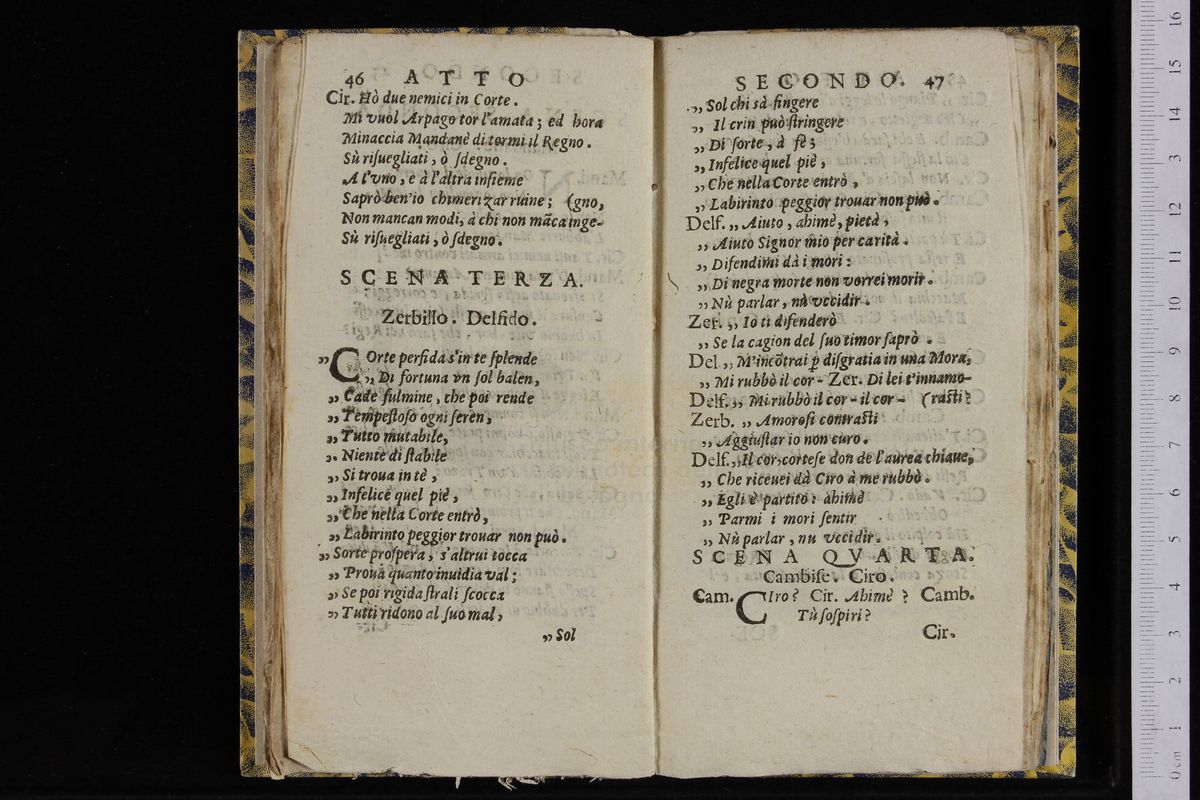 46 ATTO
Cir. Hò due nemici in Corte.
Mi vuol Arpago tor l'amata; ed hora
Minaccia Mandanè di tormi il Regno.
Sù riſuegliati, ò ſdegno.
A l'vno, e à l'altra inſieme
Saprò ben'io chimerizar ruine; (gno,
Non mancan modi, à chi non mãca inge-
Sù riſuegliati, ò ſdegno.
SCENA TERZA.
Zerbillo. Delfido.
„ COrte perfida s'in te ſplende
„ Di fortuna vn ſol balen,
„ Cade fulmine, che poi rende
„ Tempeſtoſo ogni ſeren,
„ Tutto mutabile,
„ Niente di ſtabile
„ Si troua in tè,
„ Infelice quel piè,
„ Che nella Corte entrò,
„ Labirinto peggior trouar non può.
„ Sorte proſpera, s'altrui tocca
„ Proua quanto inuidia val;
„ Se poi rigida ſtrali ſcocca
„ Tutti ridono al ſuo mal,
„ Sol
SECONDO. 47
„ Sol chi sà fingere
„ Il crin può ſtringere
„ Di ſorte, à fè;
„ Infelice quel piè,
„ Che nella Corte entrò,
„ Labirinto peggior trouar non può.
Delf. „ Aiuto, ahimè, pietà,
„ Aiuto Signor mio per carità.
„ Difendimi dà i mori:
„ Di negra morte non vorrei morir.
„ Nù parlar, nù vccidir.
Zer. „ Io ti difenderò
„ Se la cagion del ſuo timor ſaprò.
Del „ M'incõtrai p̲ diſgratia in una Mora,
„ Mi rubbò il cor- Zer. Di lei t'innamo-
Delf. „ Mi rubbò il cor-il cor- (raſti?
Zerb. „ Amoroſi contraſti
„ Aggiuſtar io non curo.
Delf. „ Il cor, corteſe don de l'aurea chiaue,
„ Che riceuei dà Ciro à me rubbò.
„ Egli è partito: ahimè
„ Parmi i mori ſentir
„ Nù parlar, nu vccidir.
SCENA QVARTA.
Cambiſe. Ciro.
Cam. CIro? Cir. Ahimè? Camb.
Tù ſoſpiri?
Cir.
0 cm 1 2 3 4 5 6 7 8 9 10 11 12 13 14 15 16